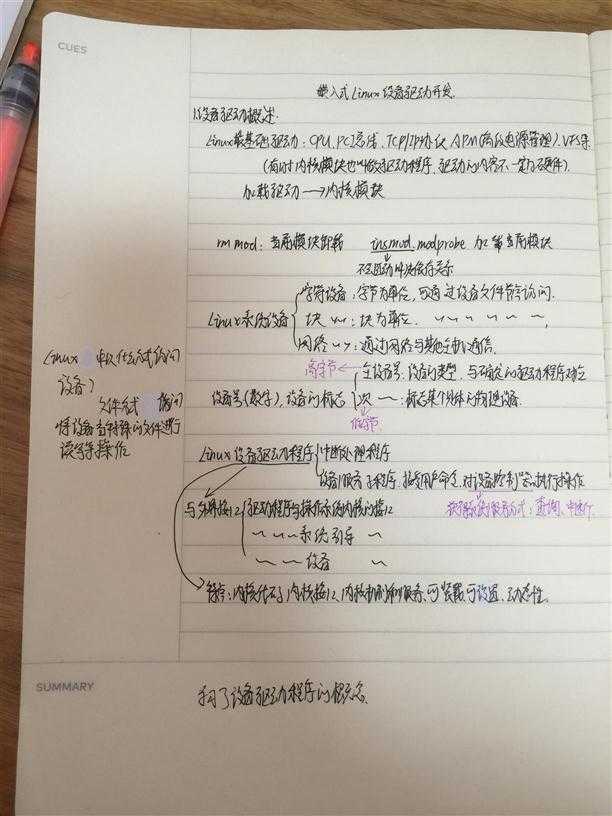 CUES
嵌入式Linux设备驱动开发
1.设备驱动概述
Linux最基础驱动：CPU、PCI总线、TCP/IP协议、APM(高级电源管理)、VFS等
(有时内核模块也叫做驱动程序，驱动的内容不一定为硬件)
加载驱动→内核模块
rmmod：当前模块卸载 insmod、modprobe 加载当前模块
不自动解决依存关系
Linux系统设备
字符设备：字节为单位，可通过设备文件节点访问.
块 〃：块为单位. 〃 〃 〃 〃 〃,
网络 〃：通过网络与其他主机通信.
Linux 中以什么方式访问
设备)
文件形式 访问
将设备当特殊的文件进行
读写等操作
高字节←主设备号.设备的类型，与确定的驱动程序对应
设备号(数字)，设备的标志
次 〃：标志某个具体的物理设备.
低字节
Linux设备驱动程序
中断处理程序
设备服务子程序，接受用户命令，对设备控制器执行操作
获得服务方式：查询、中断
与外界接口
驱动程序与操作系统内核的接口
〃 〃 〃系统引导 〃
〃 〃 设备 〃
特点：内核代码，内核接口，内核机制和服务，可装载，可设置，动态性.
SUMMARY
学习了设备驱动程序的概念.